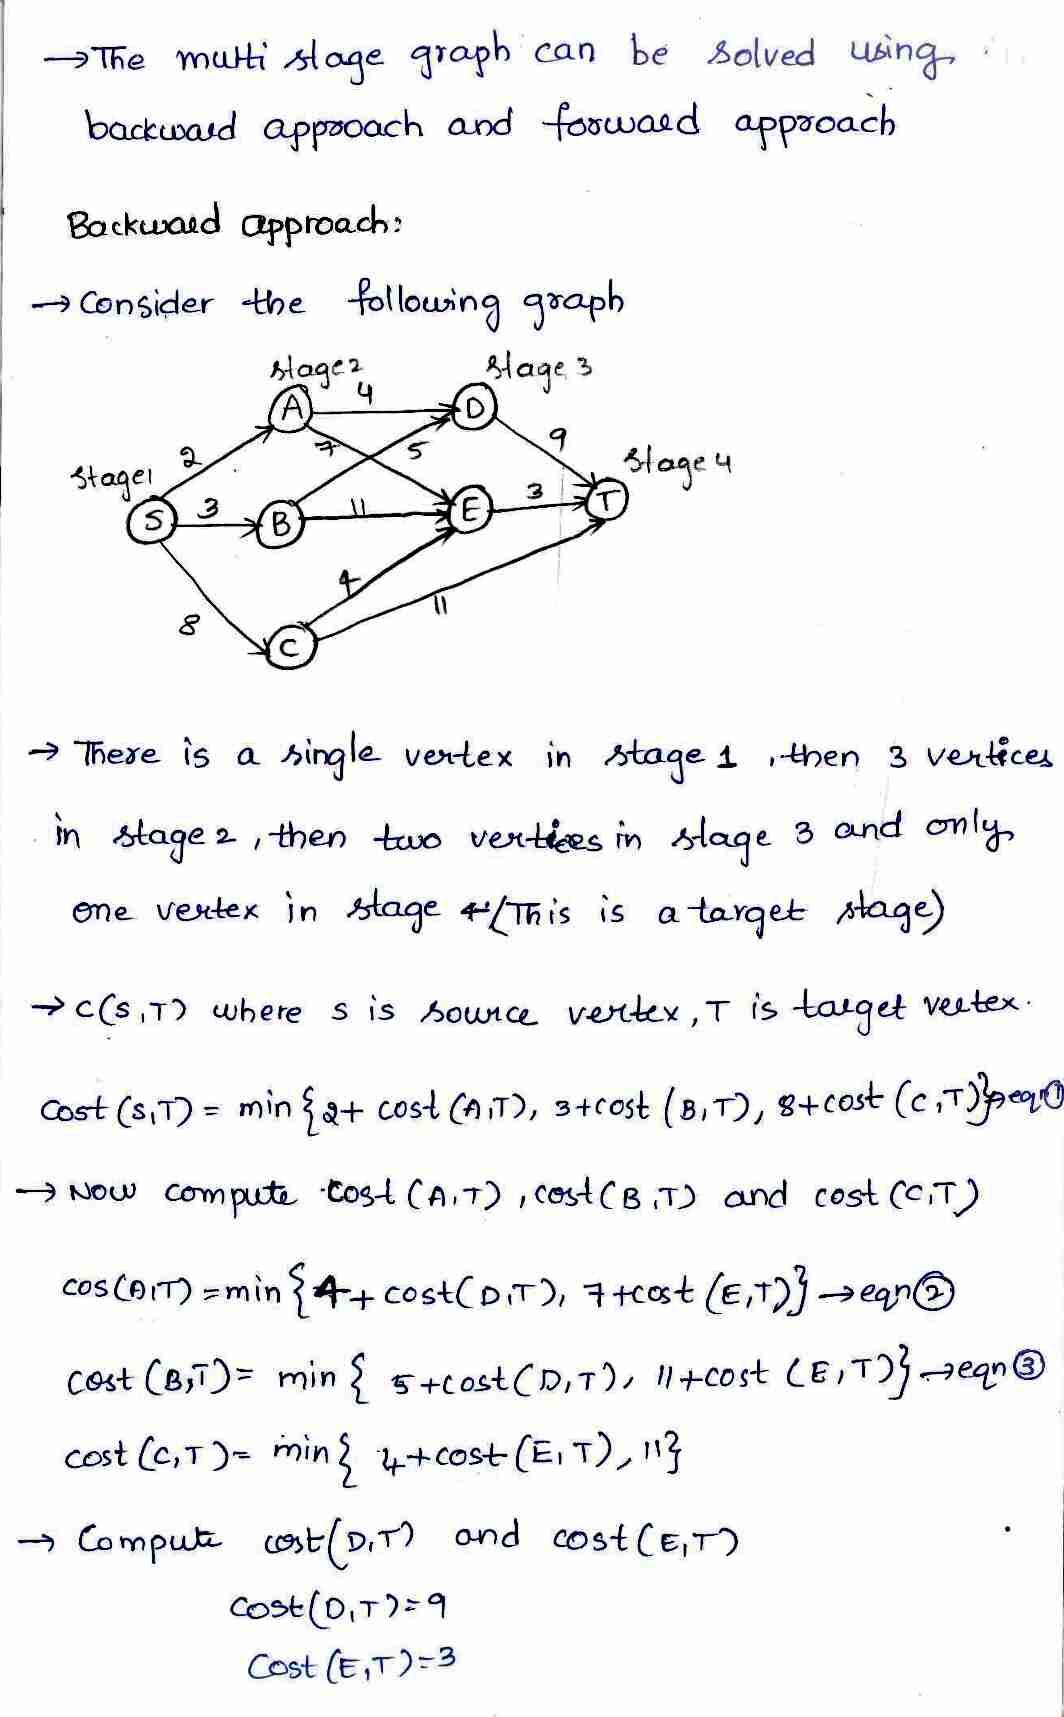 →The multi stage graph can be solved using
backward approach and forward approach
Backward approach:
→ Consider the following graph
stage2 stage 3
A 4 D
2 7 5 9
stage1 stage 4
S 3 B 11 E 3 T
4
8 11
C
→ There is a single vertex in stage 1, then 3 vertices
in stage 2, then two vertices in stage 3 and only
one vertex in stage 4 (This is a target stage)
→ C(S,T) where s is source vertex, T is target vertex.
Cost (S,T) = min{2+ cost (A,T), 3+cost (B,T), 8+cost (C,T)}→eqn①
→ Now compute cost (A,T), cost(B,T) and cost (C,T)
cos(A,T) = min{4+ cost(D,T), 7+cost (E,T)} → eqn②
cost (B,T) = min { 5+cost(D,T), 11+cost (E,T)} →eqn③
cost (C,T) = min{ 4+cost(E,T), 11}
→ Compute cost(D,T) and cost(E,T)
Cost(D,T)=9
Cost(E,T)=3